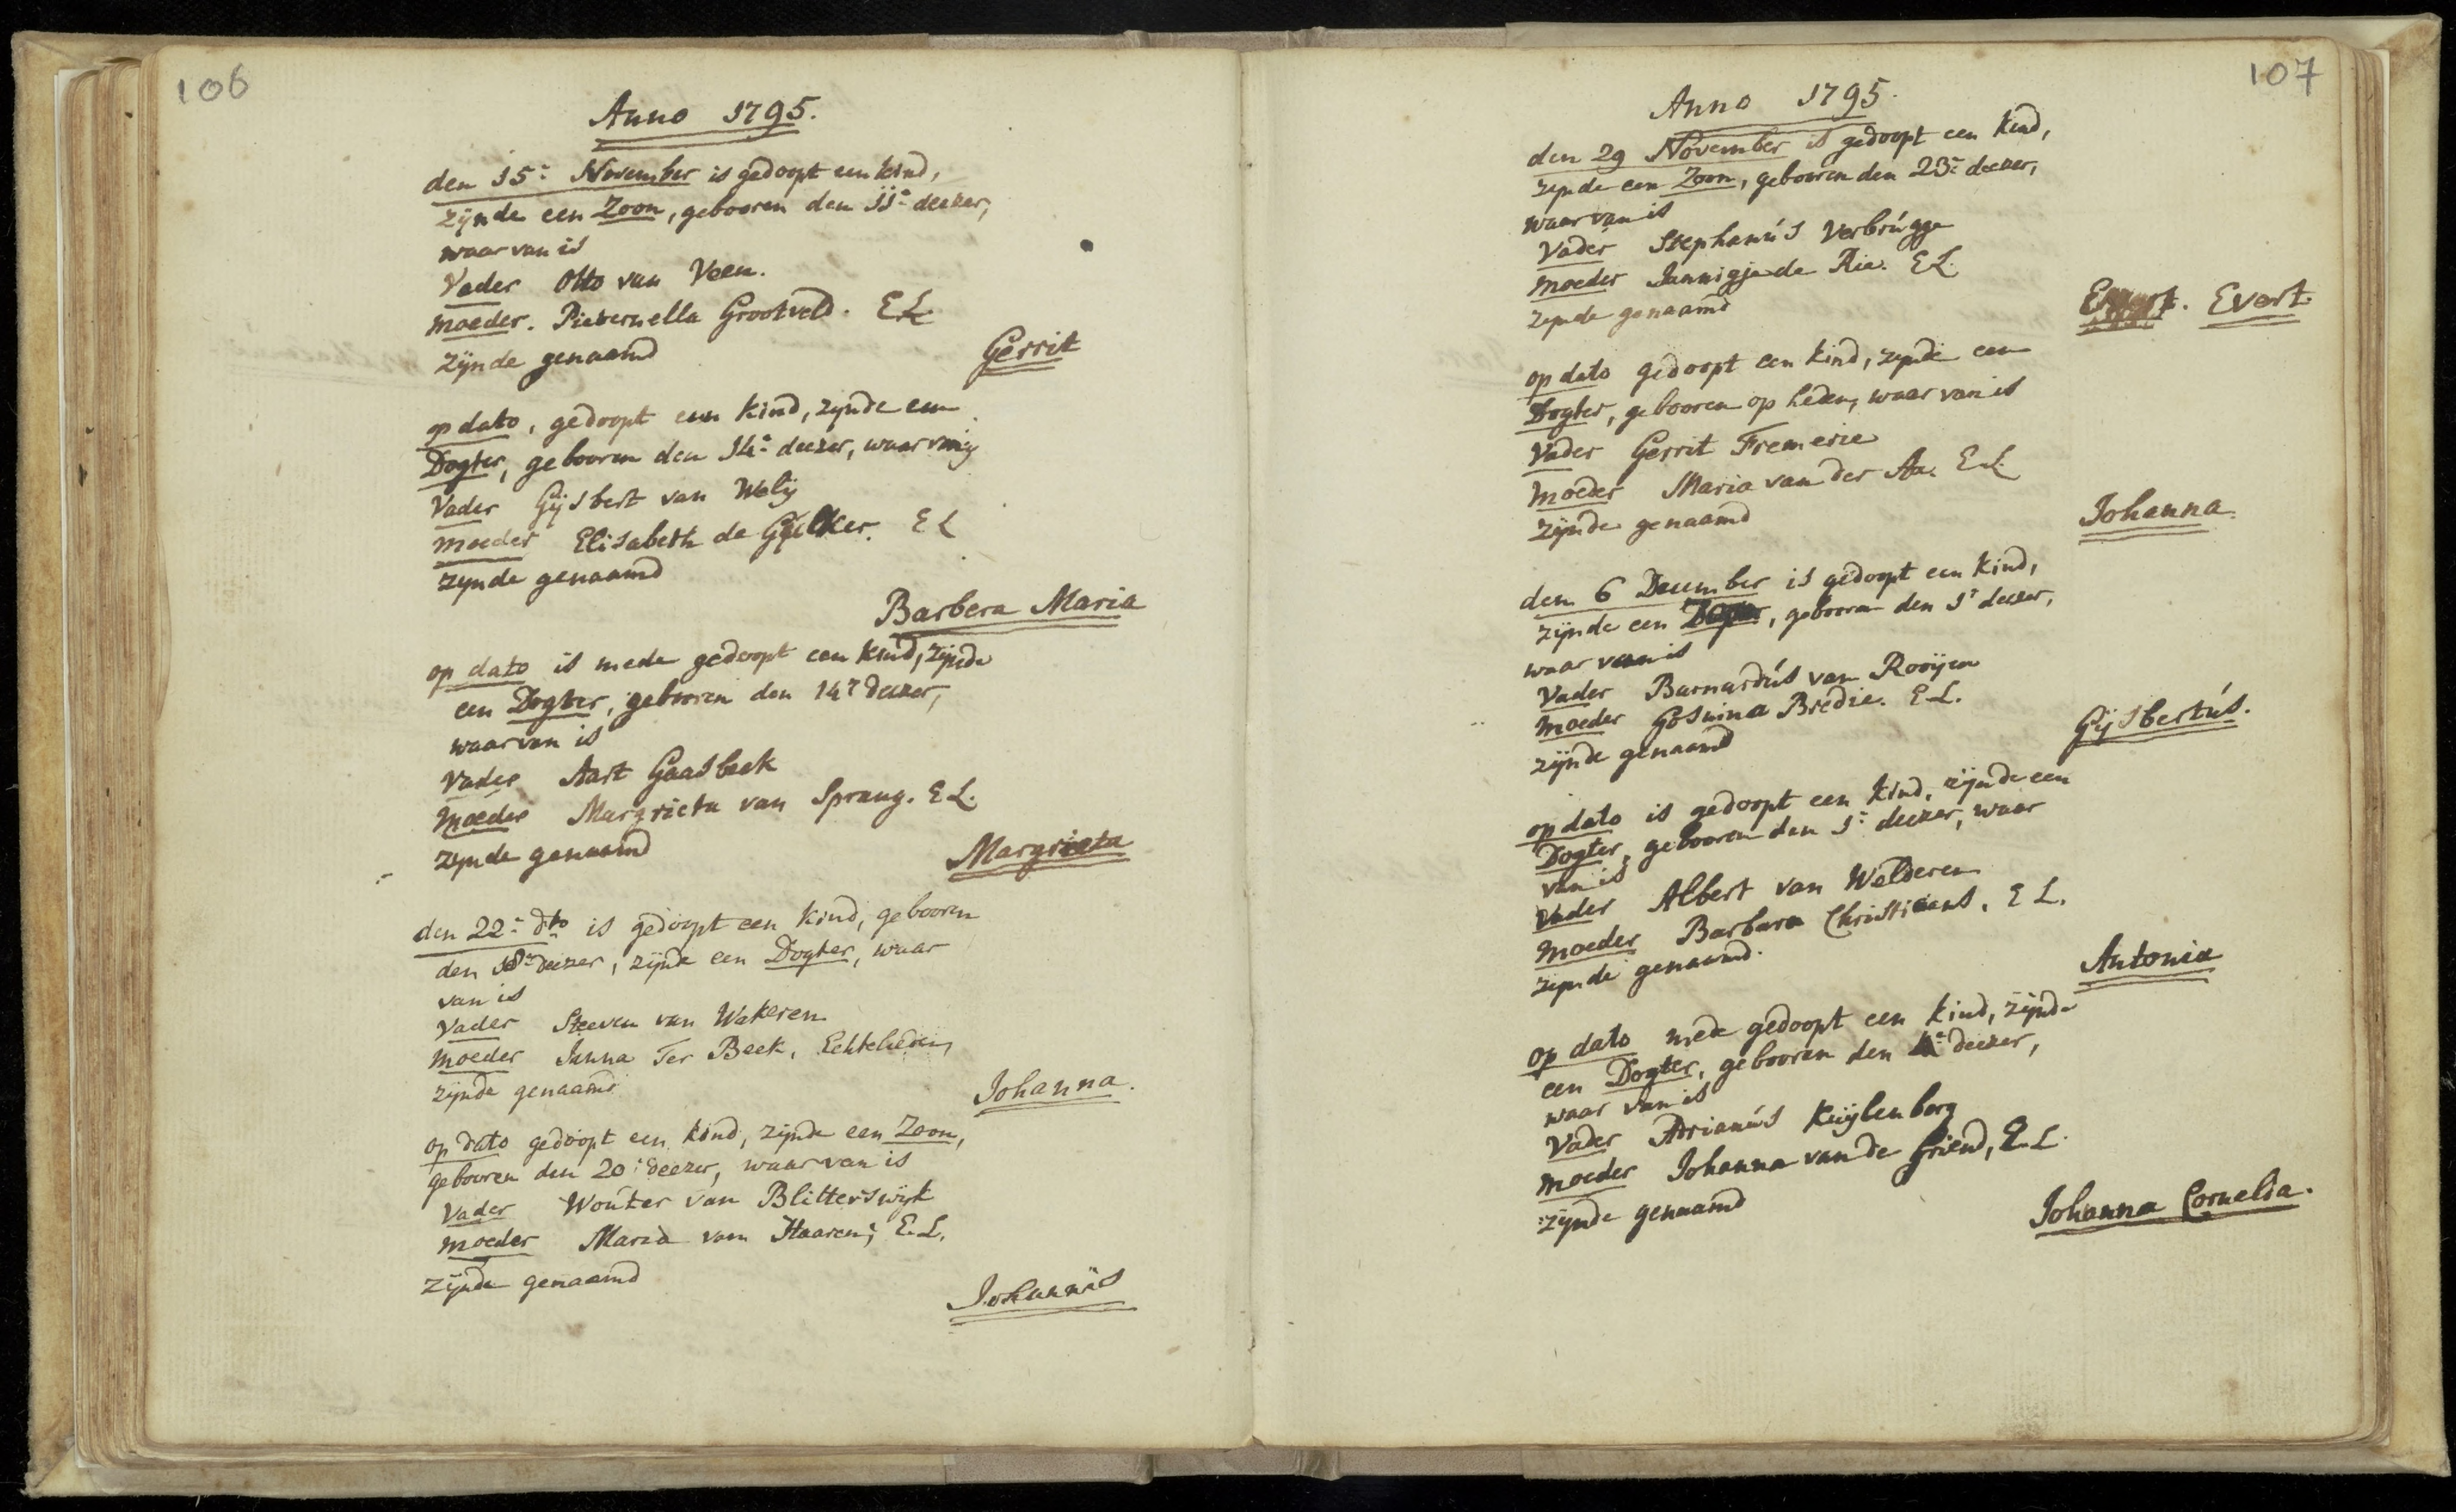 106
Anno 1795.
den 15: November is gedoopt een kind,
zijnde een Zoon, gebooren den 11: deezer,
waar van is
Vader Otto van Veen.
moeder. Pieternella Grootveld. E.L.
zijnde genaamd
Gerrit
op dato, gedoopt een kind, zijnde een
Dogter, gebooren den 14: deezer, waar van is
Vader Gijsbert van Welij
moeder Elisabeth de E L
zijnde genaamd
Barbera Maria
op dato is mede gedoopt een kind, zijnde
een Dogter, gebooren den 14: deezer,
waar van is
Vader Aart Gaasbeek
moeder Margrieta van Sprang. E L.
zijnde genaamd
Margrieta
den 22: dto is gedoopt een kind, gebooren
den 18: deezer, zijnde een Dogter, waar
van is
Vader Steeven van Wakeren
moeder Janna Ter Beek, Echtelieden,
zijnde genaamd
Johanna.
op dato gedoopt een kind, zijnde een Zoon,
gebooren den 20: deezer, waar van is
Vader Wouter van Blitterswijk
moeder Maria van Haaren, E.L.
zijnde genaamd
Johannis
107
Anno 1795.
den 29 November is gedoopt een kind,
zijnde een Zoon, gebooren den 23: deezer,
waar van is
Vader Stephanús Verbrúgge
moeder Jannigje de Rie. E L.
zijnde genaamd
Evert.
op dato gedoopt een kind, zijnde een
Dogter, gebooren op heden, waar van is
Vader Gerrit Fremerie
moeder Maria van der Aa. E L.
zijnde genaamd
Johanna.
den 6 December is gedoopt een kind,
zijnde een, gebooren den 1: deezer,
waar van is
Vader Barnardús van Rooijen
moeder Gosuina Bredie. E L.
zijnde genaamd
Gijsbertús.
op dato is gedoopt een kind, zijnde een
Dogter, gebooren den 1: deezer, waar
van is
Vader Albert van Welderen
moeder Barbara Christiaans. E L.
zijnde genaamd.
Antonia
op dato mede gedoopt een kind, zijnde
een Dogter, gebooren den 4: deezer,
waar van is
Vader Adrianús Kuijlenborg
moeder Johanna van de Griend, E.L.
zijnde genaamd
Johanna Cornelia.